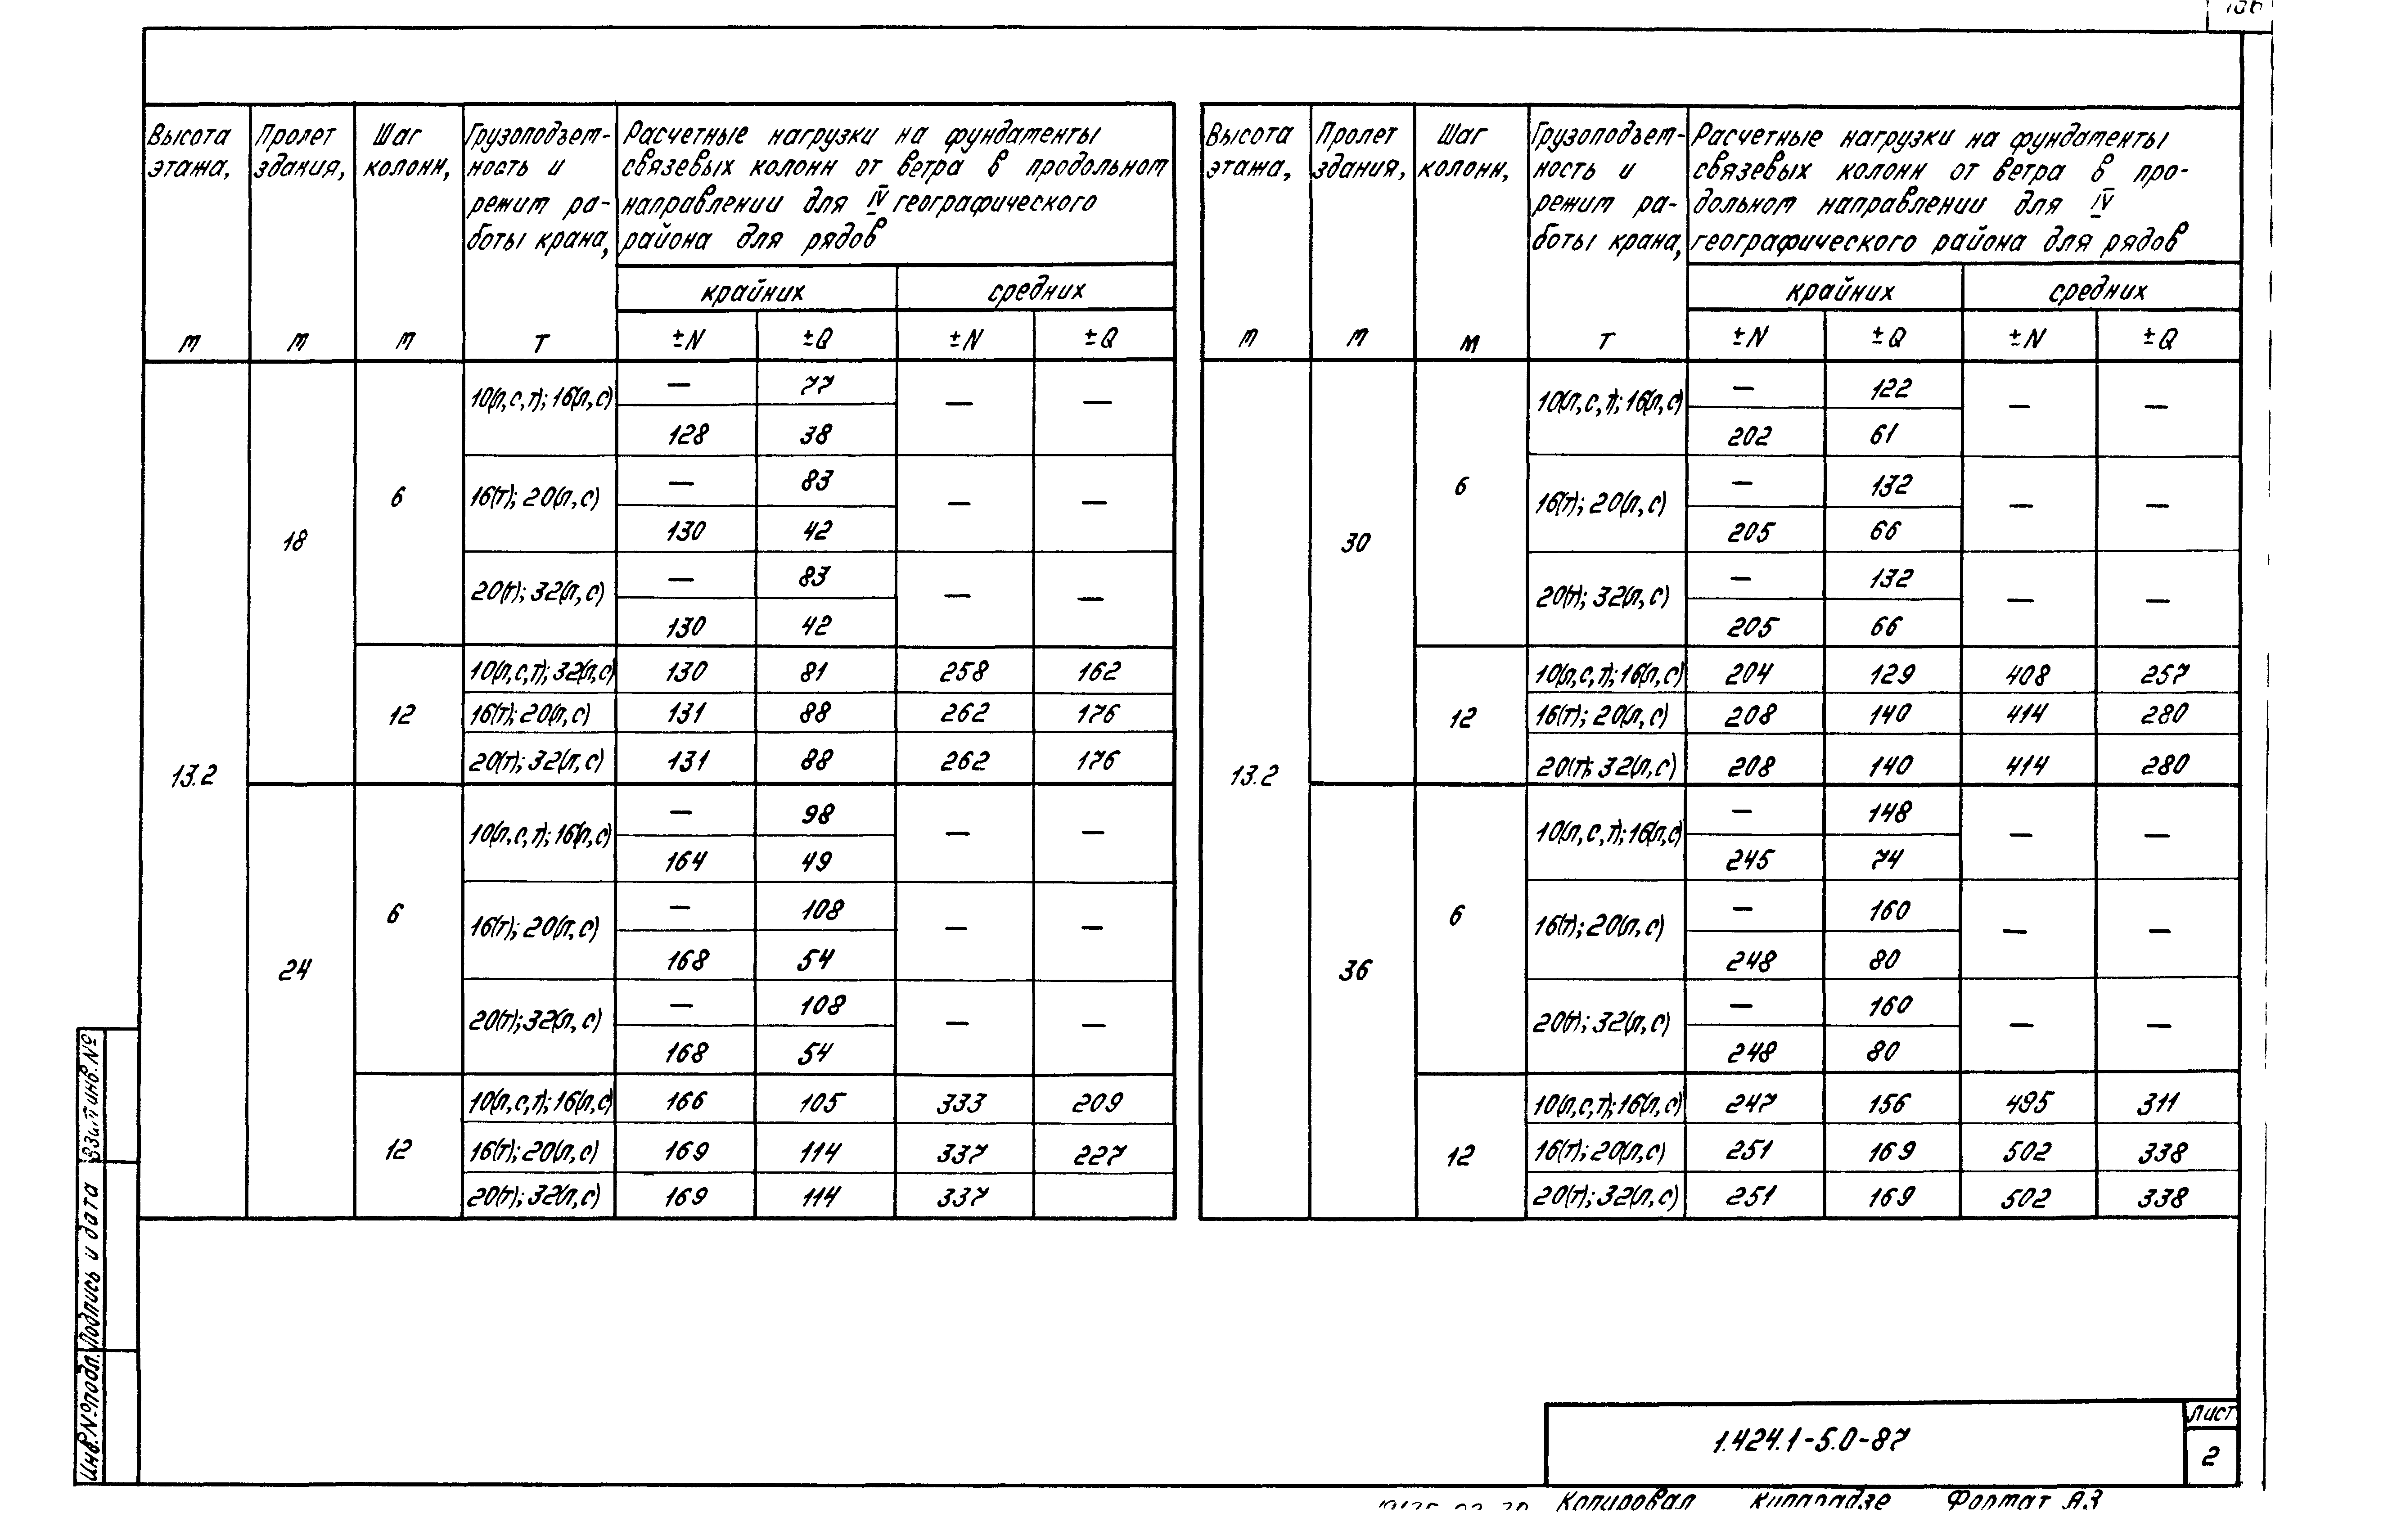 Высота этажа, м | Пролет здания, м | Шаг колонн, м | Грузоподъем-ность и режим ра-боты крана, т | Расчетные нагрузки на фундаменты связевых колонн от ветра в продольном направлении для IV географического района для рядов
крайних | средних
±N | ±Q | ±N | ±Q
13.2 | 18 | 6 | 10(л,с,т); 16(л,с) | — | 77 | — | —
128 | 38
16(т); 20(л,с) | — | 83 | — | —
130 | 42
20(т); 32(л,с) | — | 83 | — | —
130 | 42
12 | 10(л,с,т); 32(л,с) | 130 | 81 | 258 | 162
16(т); 20(л,с) | 131 | 88 | 262 | 176
20(т); 32(л,с) | 131 | 88 | 262 | 176
24 | 6 | 10(л,с,т); 16(л,с) | — | 98 | — | —
164 | 49
16(т); 20(л,с) | — | 108 | — | —
168 | 54
20(т); 32(л,с) | — | 108 | — | —
168 | 54
12 | 10(л,с,т); 16(л,с) | 166 | 105 | 333 | 209
16(т); 20(л,с) | 169 | 114 | 337 | 227
20(т); 32(л,с) | 169 | 114 | 337
Высота этажа, м | Пролет здания, м | Шаг колонн, м | Грузоподъем-ность и режим ра-боты крана, т | Расчетные нагрузки на фундаменты связевых колонн от ветра в про-дольном направлении для IV географического района для рядов
крайних | средних
±N | ±Q | ±N | ±Q
13.2 | 30 | 6 | 10(л,с,т); 16(л,с) | — | 122 | — | —
202 | 61
16(т); 20(л,с) | — | 132 | — | —
205 | 66
20(т); 32(л,с) | — | 132 | — | —
205 | 66
12 | 10(л,с,т); 16(л,с) | 204 | 129 | 408 | 257
16(т); 20(л,с) | 208 | 140 | 414 | 280
20(т); 32(л,с) | 208 | 140 | 414 | 280
36 | 6 | 10(л,с,т); 16(л,с) | — | 148 | — | —
245 | 74
16(т); 20(л,с) | — | 160 | — | —
248 | 80
20(т); 32(л,с) | — | 160 | — | —
248 | 80
12 | 10(л,с,т); 16(л,с) | 247 | 156 | 495 | 311
16(т); 20(л,с) | 251 | 169 | 502 | 338
20(т); 32(л,с) | 251 | 169 | 502 | 338
Инв.№подл. Подпись и дата Взам инв.№
1.424.1-5.0-87
Лист
2
Копировал Кипарадзе Формат А3